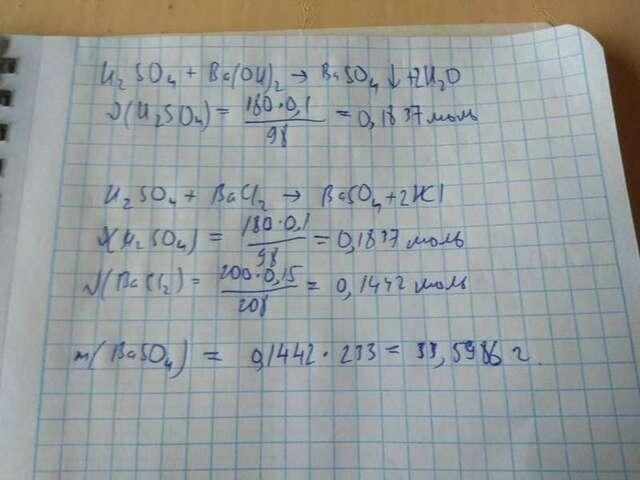 H₂SO₄ + Ba(OH)₂ → BaSO₄↓ + 2H₂O
ν(H₂SO₄) = 180·0,1 / 98 = 0,1837 моль
H₂SO₄ + BaCl₂ → BaSO₄ + 2HCl
ν(H₂SO₄) = 180·0,1 / 98 = 0,1837 моль
ν(BaCl₂) = 200·0,15 / 208 = 0,1442 моль
m(BaSO₄) = 0,1442·233 = 33,5986 г.